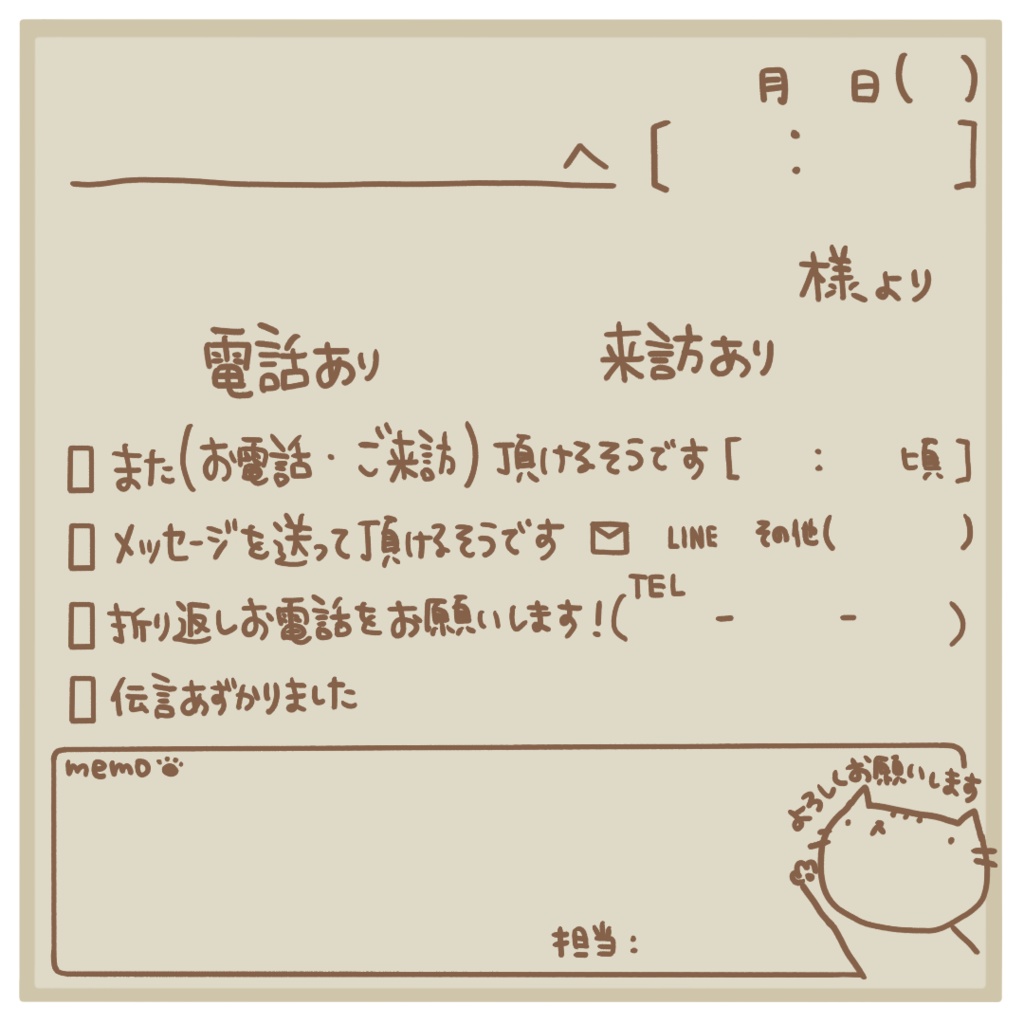 月 日( )
へ [ : ]
様より
電話あり 来訪あり
□ また(お電話・ご来訪)頂けるそうです [ : 頃]
□ メッセージを送って頂けるそうです ✉ LINE その他( )
□ 折り返しお電話をお願いします!(TEL - - )
□ 伝言あずかりました
memo
よろしくお願いします
担当: